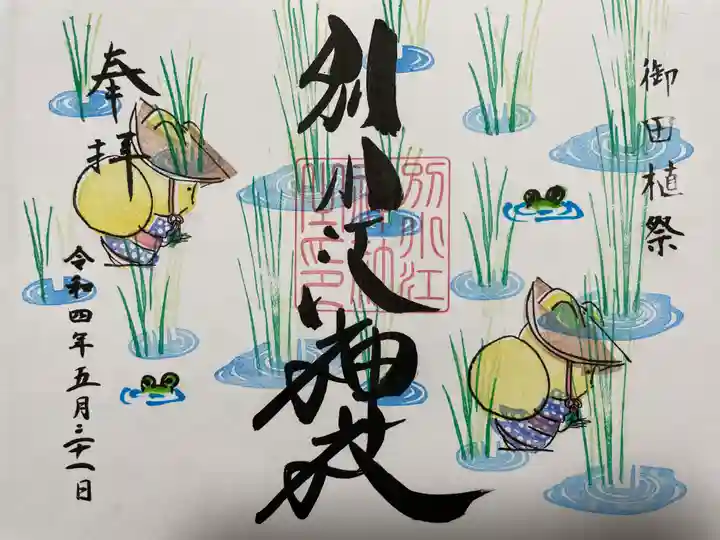 御田植祭
別小江神社
別小江
奉拝
令和四年五月二十一日